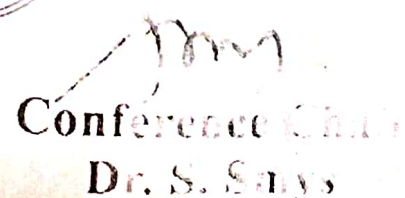 Conference Chair
Dr. S. Smys